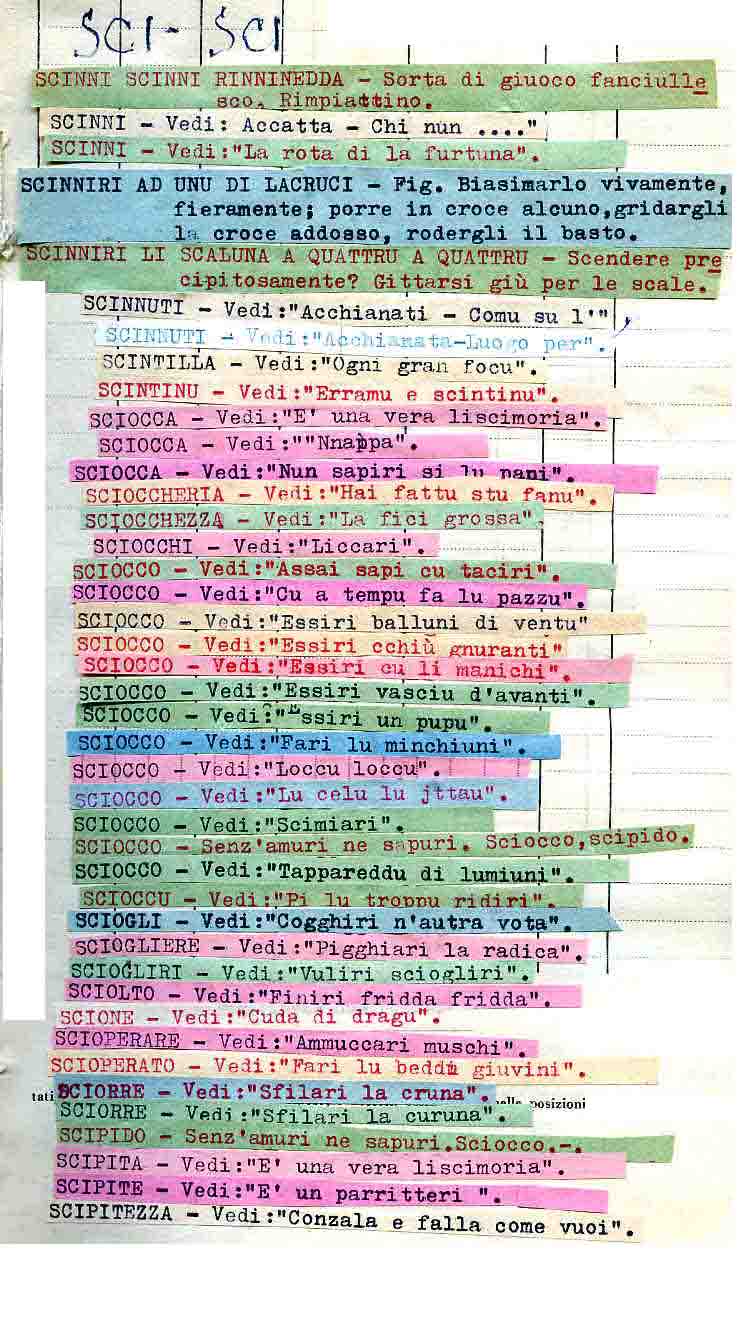 SCI- SCI
SCINNI SCINNI RINNINEDDA - Sorta di giuoco fanciulle
sco. Rimpiattino.
SCINNI - Vedi: Accatta - Chi nun ...."
SCINNI - Vedi:"La rota di la furtuna".
SCINNIRI AD UNU DI LACRUCI - Fig. Biasimarlo vivamente,
fieramente; porre in croce alcuno,gridargli
la croce addosso, rodergli il basto.
SCINNIRI LI SCALUNA A QUATTRU A QUATTRU - Scendere pre
cipitosamente? Gittarsi giù per le scale.
SCINNUTI - Vedi:"Acchianati - Comu su l'"
SCINNUTI - Vedi:"Acchianata-Luogo per".
SCINTILLA - Vedi:"Ogni gran focu".
SCINTINU - Vedi:"Erramu e scintinu".
SCIOCCA - Vedi:"E' una vera liscimoria".
SCIOCCA - Vedi:""Nnappa".
SCIOCCA - Vedi:"Nun sapiri si lu pani".
SCIOCCHERIA - Vedi:"Hai fattu stu fanu".
SCIOCCHEZZA - Vedi:"La fici grossa".
SCIOCCHI - Vedi:"Liccari".
SCIOCCO - Vedi:"Assai sapi cu taciri".
SCIOCCO - Vedi:"Cu a tempu fa lu pazzu".
SCIOCCO - Vedi:"Essiri balluni di ventu"
SCIOCCO - Vedi:"Essiri cchiù gnuranti"
SCIOCCO - Vedi:"Essiri cu li manichi".
SCIOCCO - Vedi:"Essiri vasciu d'avanti".
SCIOCCO - Vedi:"Essiri un pupu".
SCIOCCO - Vedi:"Fari lu minchiuni".
SCIOCCO - Vedi:"Loccu loccu".
SCIOCCO - Vedi:"Lu celu lu jttau".
SCIOCCO - Vedi:"Scimiari".
SCIOCCO - Senz'amuri ne sapuri. Sciocco,scipido.
SCIOCCO - Vedi:"Tappareddu di lumiuni".
SCIOCCU - Vedi:"Pi lu troppu ridiri".
SCIOGLI - Vedi:"Cogghiri n'autra vota".
SCIOGLIERE - Vedi:"Pigghiari la radica".
SCIOGLIRI - Vedi:"Vuliri sciogliri".
SCIOLTO - Vedi:"Finiri fridda fridda".
SCIONE - Vedi:"Cuda di dragu".
SCIOPERARE - Vedi:"Ammuccari muschi".
SCIOPERATO - Vedi:"Fari lu beddu giuvini".
tati SCIORRE - Vedi:"Sfilari la cruna". posizioni
SCIORRE - Vedi:"Sfilari la curuna".
SCIPIDO - Senz'amuri ne sapuri.Sciocco.-.
SCIPITA - Vedi:"E' una vera liscimoria".
SCIPITE - Vedi:"E' un parritteri ".
SCIPITEZZA - Vedi:"Conzala e falla come vuoi".